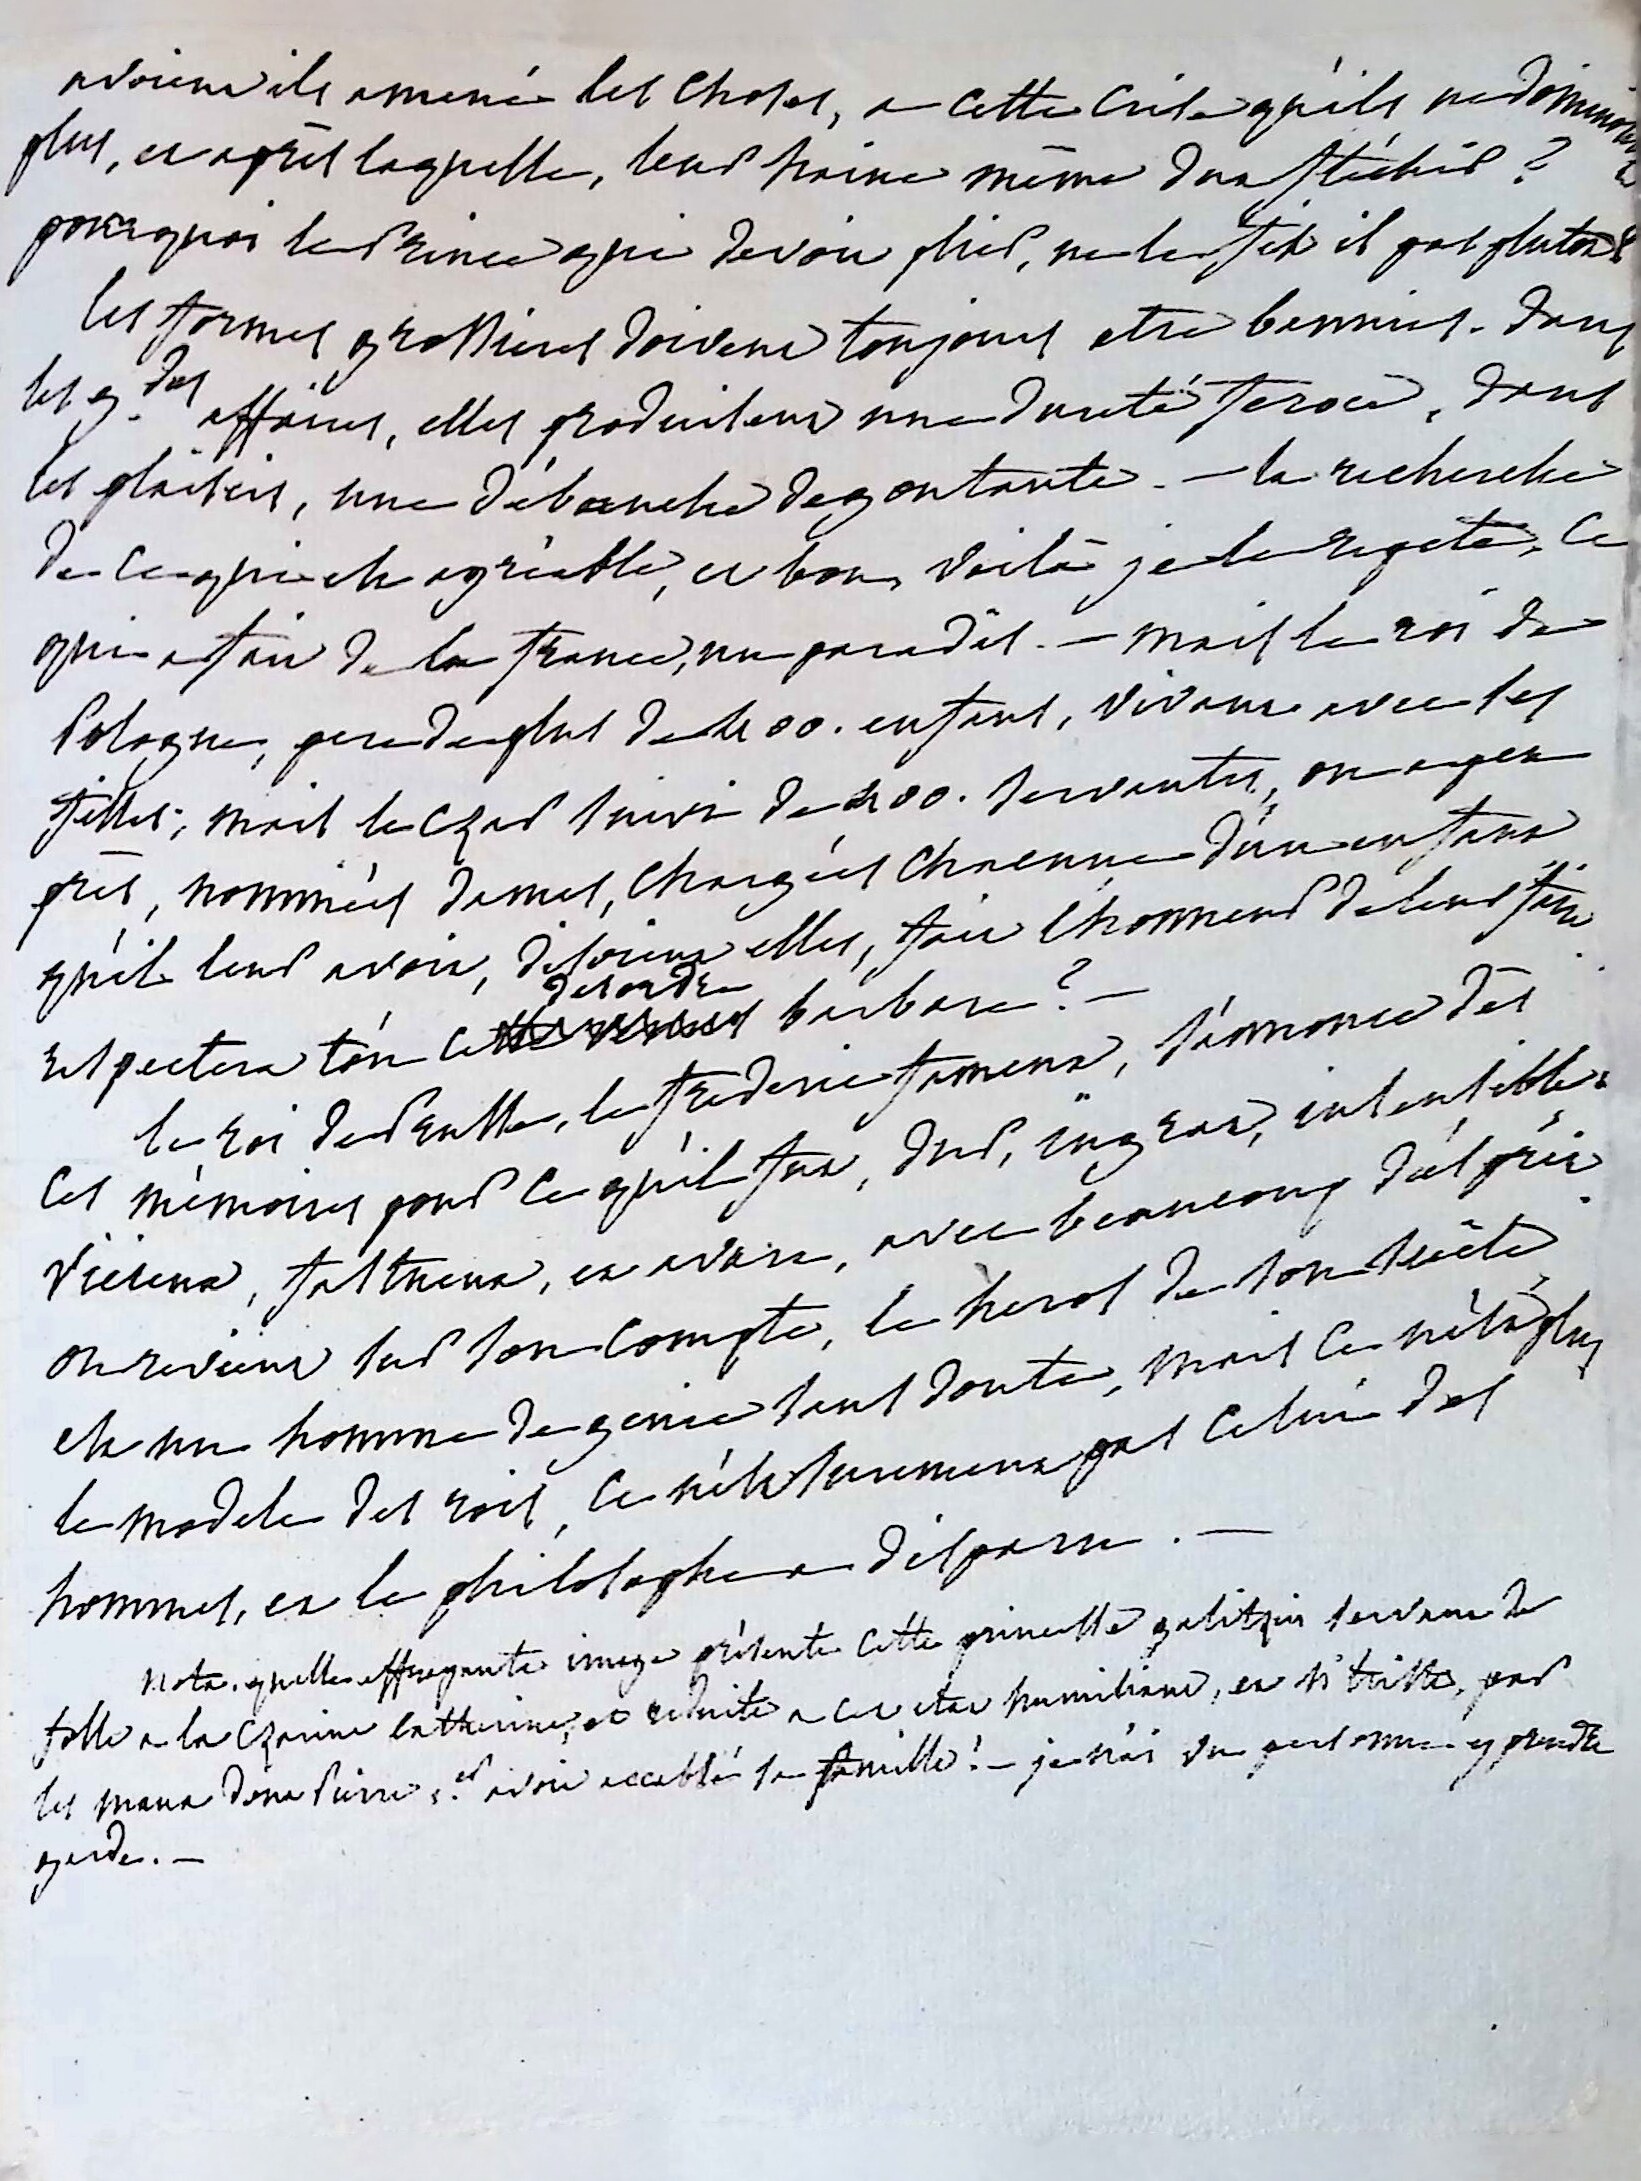 avoient ils amené les choses, a cette crise qu'ils ne dominoient
plus, et après laquelle, leur haine même dut fléchir ?
pourquoi le Prince qui devoit plier, ne le fit il pas plutost
les formes grossieres doivent toujours etre bannies. dans
les g.des affaires, elles produisent une dureté feroce, dans
les plaisirs, une débauche degoutante. — la recherche
de ce qui est agréable, et bon, voilà je le repete, ce
qui a fait de la france, un paradis. — mais le roi de
Pologne, pere de plus de 400. enfans, vivant avec ses
filles; mais le czar suivi de 400. servantes, ou a peu
près, nommées dames, chargées chacune d'un enfant
qu'il leur avoit, disoient elles, fait l'honneur de leur faire
respectera t'on ce desordre barbare ? —
le roi de Prusse, le frederic fameux, s'annonce dès
ces mémoires pour ce qu'il fut, dur, ingrat, insensible,
vicieux, fastueux, et avare, avec beaucoup d'esprit
on revient sur son compte, le heros de son siècle
est un homme de genie sans doute, mais ce n'est plus
le modele des rois, ce n'est surement pas celui des
hommes, et le philosophe a disparu. —
Nota. quelle effrayante image présente cette princesse galitzin servant de
folle a la czarine catherine, et reduite a cet etat humiliant, et si triste, par
les maux dont Pierre 1.er avoit accablé sa famille ! — je n'ai vu personne y prendre
garde. —